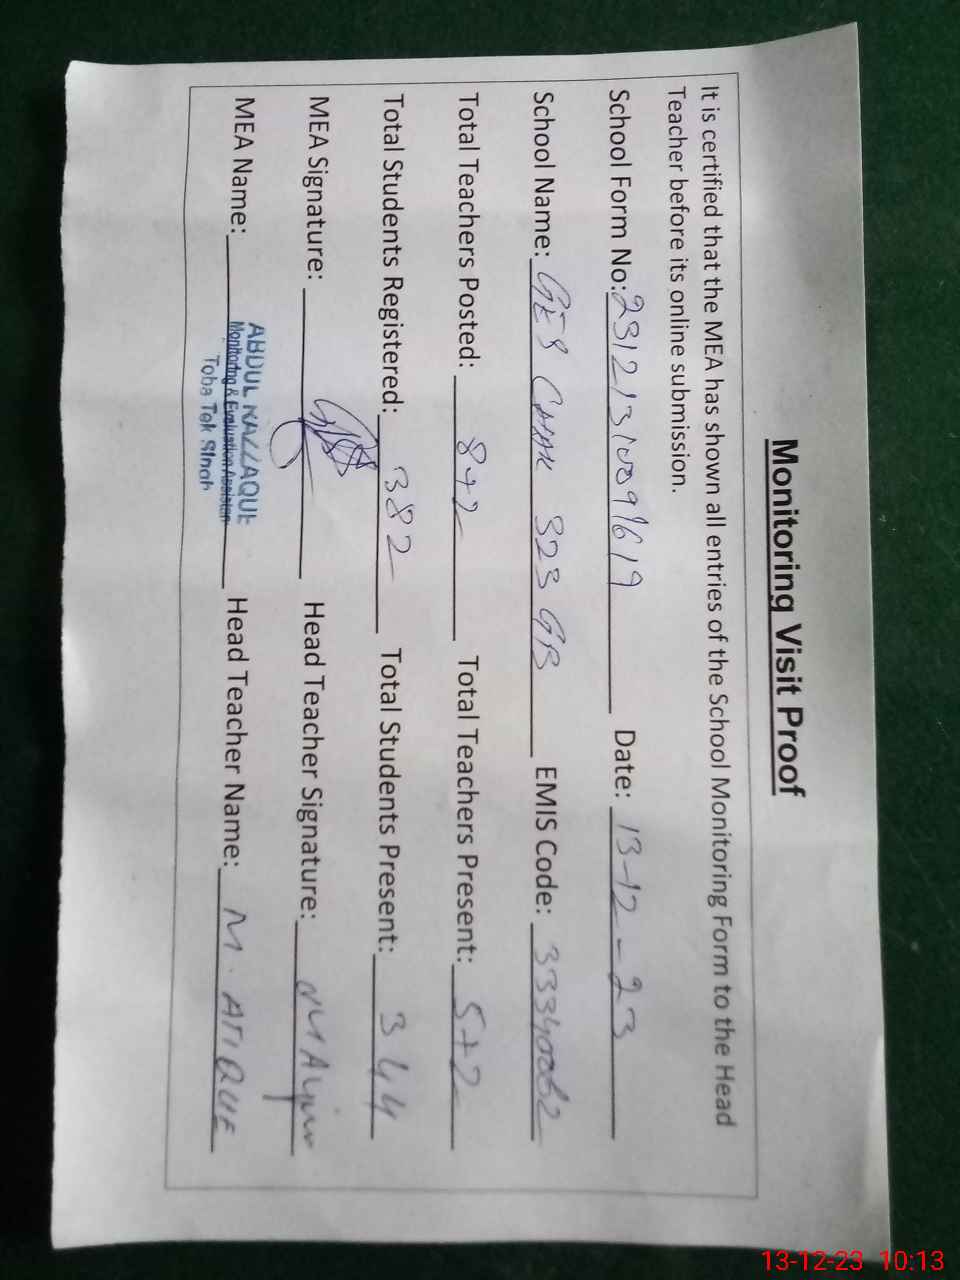 Monitoring Visit Proof
It is certified that the MEA has shown all entries of the School Monitoring Form to the Head
Teacher before its online submission.
School Form No: 23121310091619 Date: 13-12-23
School Name: GES CHAK 323 GB EMIS Code: 33340062
Total Teachers Posted: 8+2 Total Teachers Present: 5+2
Total Students Registered: 382 Total Students Present: 344
MEA Signature: Head Teacher Signature:
MEA Name: ABDUL RAZZAQUE Head Teacher Name: M. ATIQUE
Monitoring & Evaluation Assistant
Toba Tek Singh
13-12-23 10:13